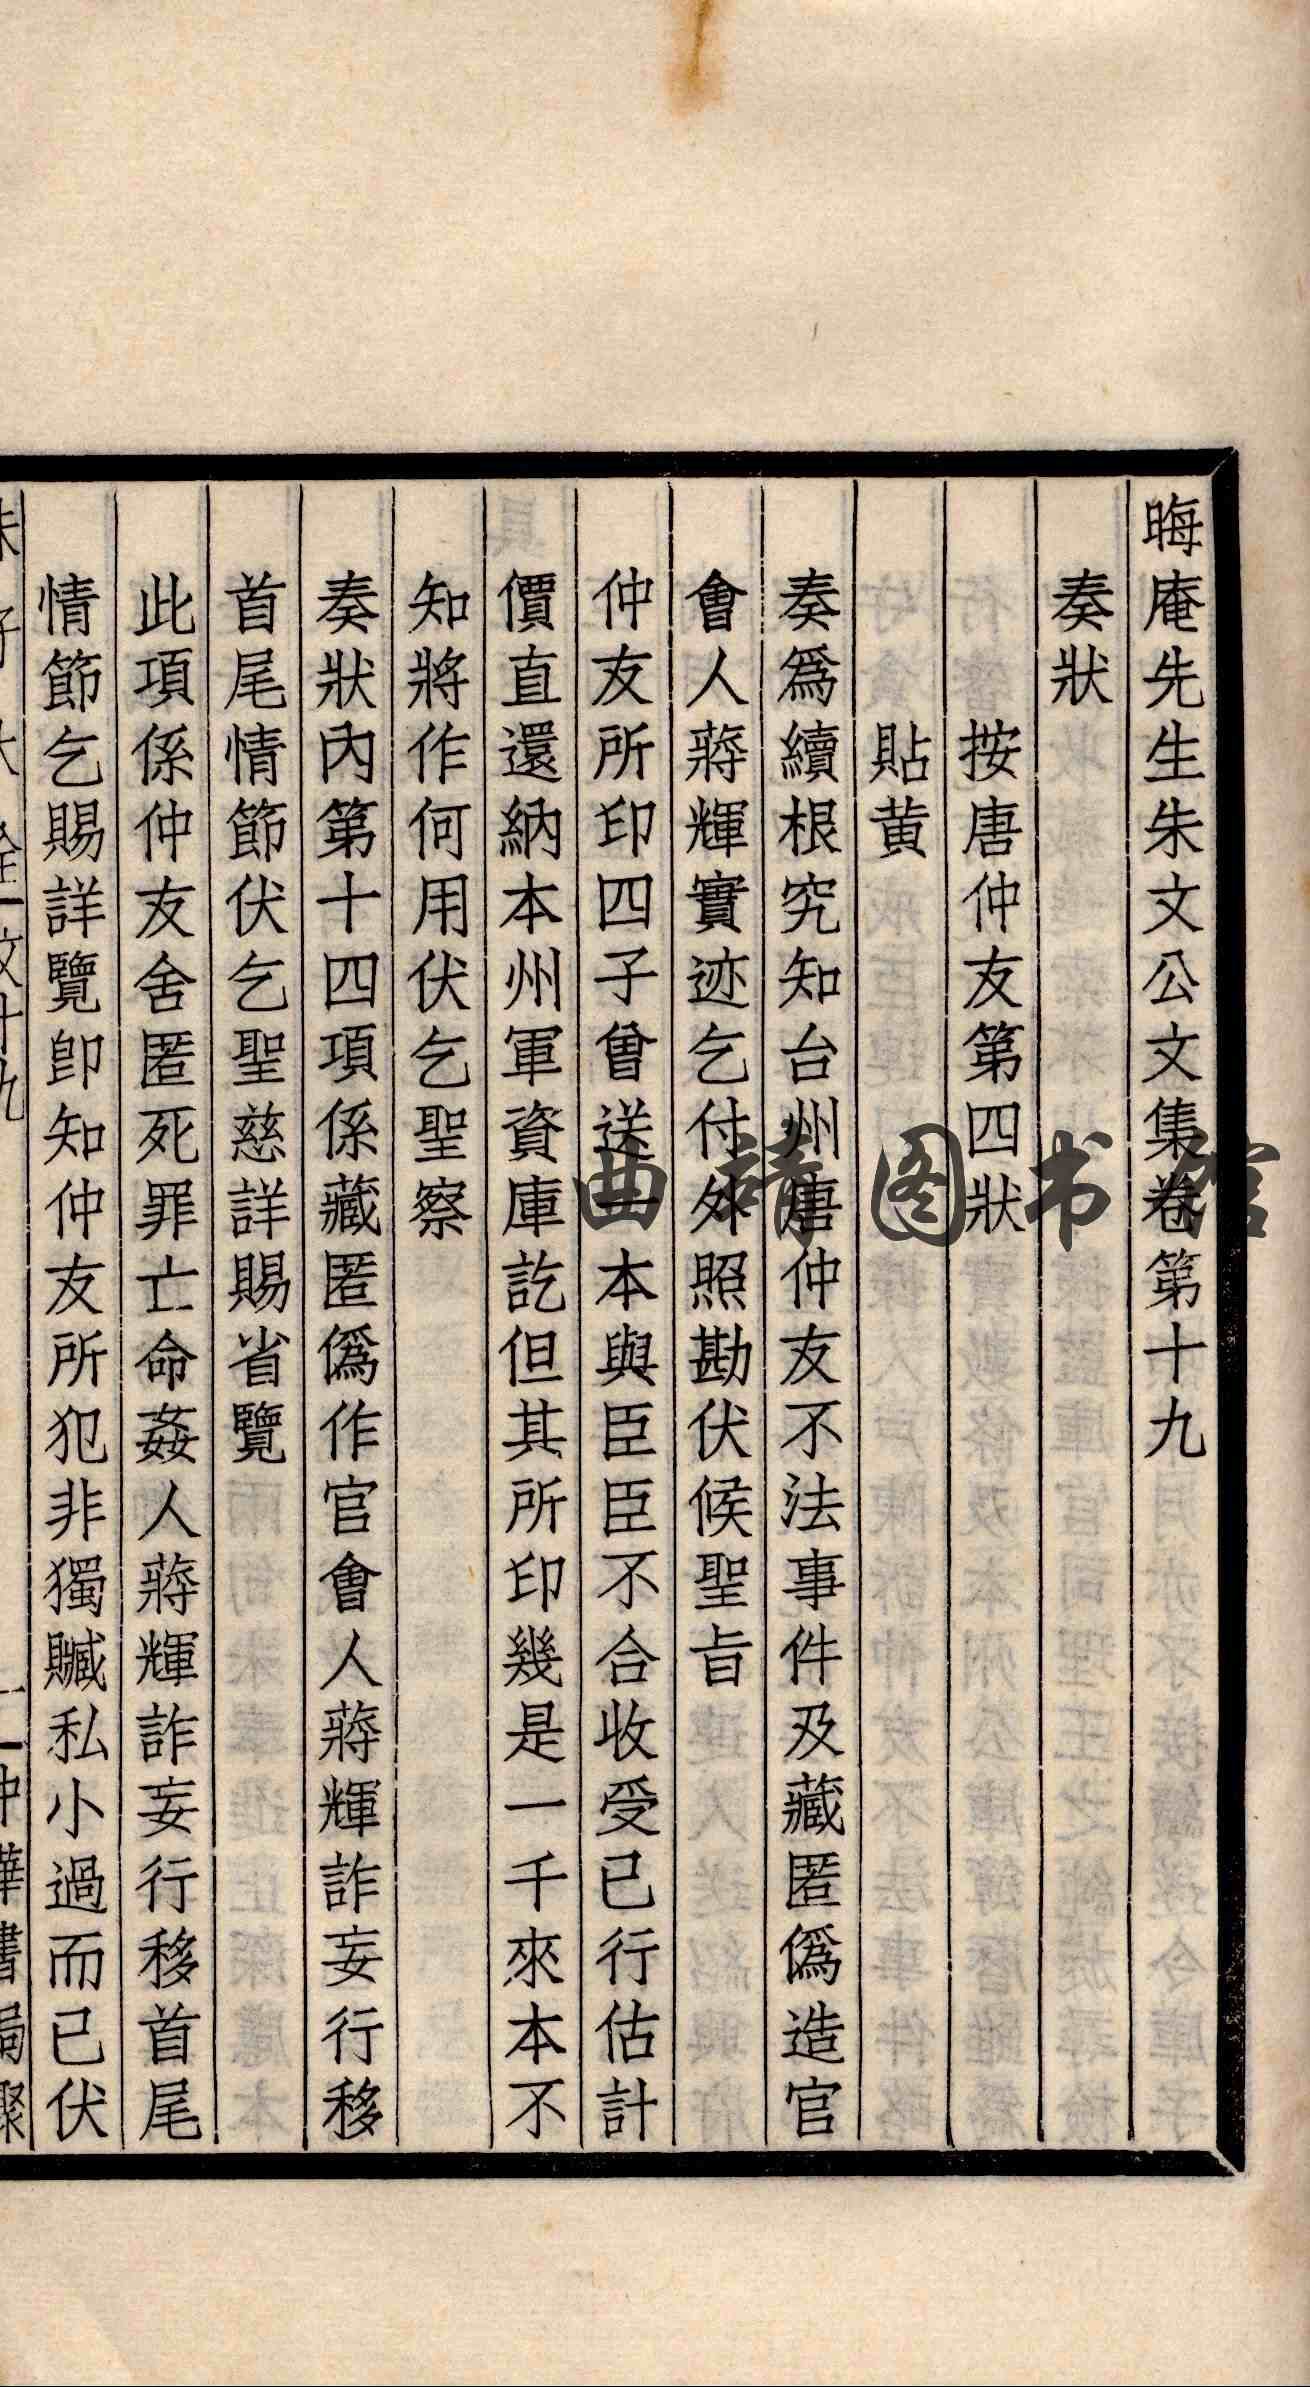 晦庵先生朱文公文集卷第十九
奏狀
按唐仲友第四狀
貼黄
奏爲續根究知台州唐仲友不法事件及藏匿僞造官
會人蔣輝實迹乞付外照勘伏候聖旨
仲友所印四子曾送一本與臣臣不合收受已行估計
價直還納本州軍資庫訖但其所印幾是一千來本不
知將作何用伏乞聖察
奏狀內第十四項係藏匿僞作官會人蔣輝詐妄行移
首尾情節伏乞聖慈詳賜省覽
此項係仲友舍匿死罪亡命姦人蔣輝詐妄行移首尾
情節乞賜詳覽卽知仲友所犯非獨贓私小過而已伏
曲靖图书馆